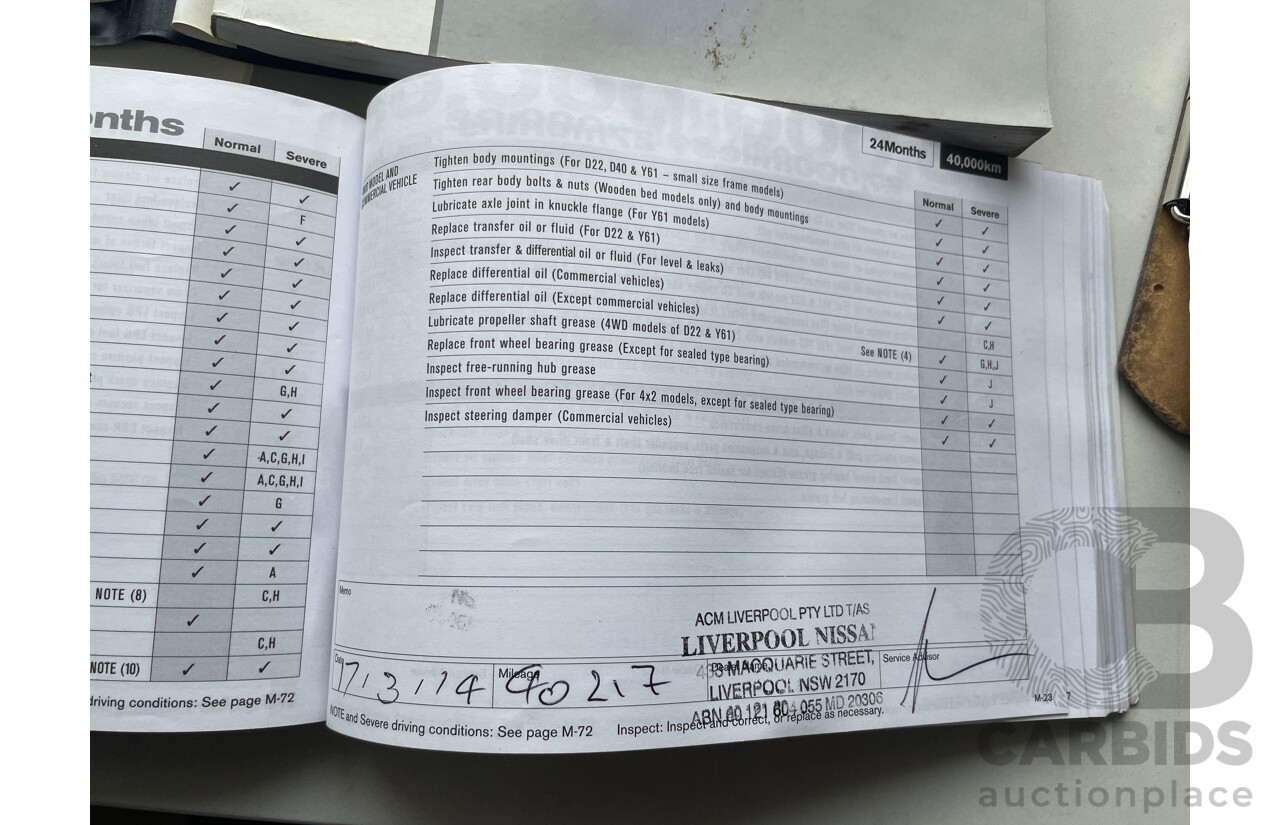 nths
Normal Severe
✓ ✓
✓ F
✓ ✓
✓ ✓
✓ ✓
✓ ✓
✓ ✓
✓ ✓
✓ ✓
✓ G,H
✓ ✓
✓ ✓
✓ A,C,G,H,I
✓ A,C,G,H,I
✓ G
✓ ✓
✓ ✓
✓ A
NOTE (8) C,H
✓
C,H
NOTE (10) ✓ ✓
driving conditions: See page M-72
24Months 40,000km
Normal Severe
MODEL AND
COMMERCIAL VEHICLE
Tighten body mountings (For D22, D40 & Y61 – small size frame models) ✓ ✓
Tighten rear body bolts & nuts (Wooden bed models only) and body mountings ✓ ✓
Lubricate axle joint in knuckle flange (For Y61 models) ✓ ✓
Replace transfer oil or fluid (For D22 & Y61) ✓ ✓
Inspect transfer & differential oil or fluid (For level & leaks) ✓ ✓
Replace differential oil (Commercial vehicles) ✓ ✓
Replace differential oil (Except commercial vehicles) C,H
Lubricate propeller shaft grease (4WD models of D22 & Y61) See NOTE (4) ✓ G,H,J
Replace front wheel bearing grease (Except for sealed type bearing) ✓ J
Inspect free-running hub grease ✓ J
Inspect front wheel bearing grease (For 4x2 models, except for sealed type bearing) ✓ ✓
Inspect steering damper (Commercial vehicles) ✓ ✓
Memo
ACM LIVERPOOL PTY LTD T/AS
LIVERPOOL NISSAN
MACQUARIE STREET,
LIVERPOOL NSW 2170
ABN 60 121 604 055 MD 20306
Date 7/3/14
Mileage 40217
Dealer Name
Service Advisor
NOTE and Severe driving conditions: See page M-72
Inspect: Inspect and correct, or replace as necessary.
M-23 7
CB
CARBIDS
auctionplace